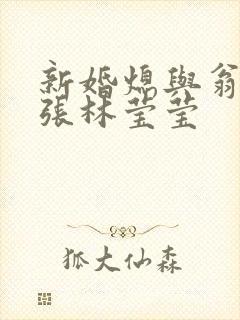 新婚熄與翁
張林莹莹
狐大仙森